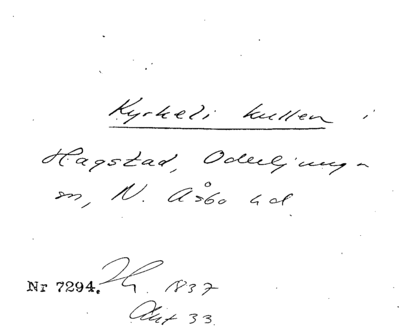 Kyrkeli kullen i
Hagstad, Oderljunga
sn, N. Åsbo hd.
Nr 7294. 1837
Akt 33